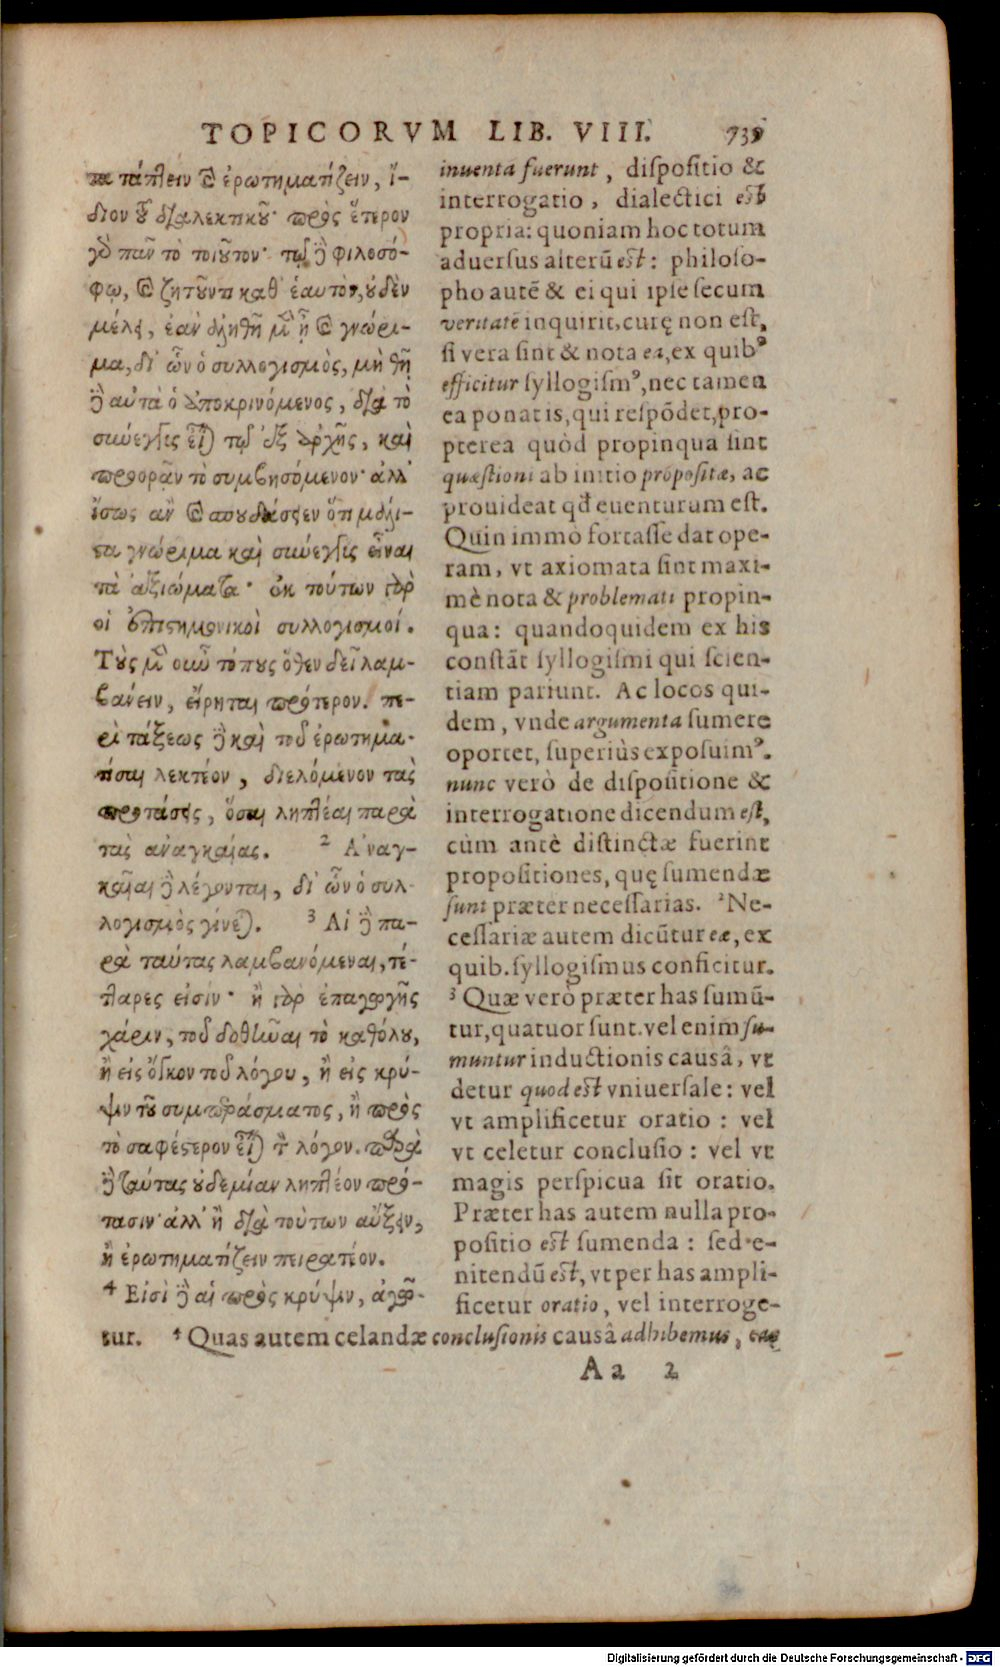 TOPICORVM LIB. VIII. 739
τα τάττειν καὶ ἐρωτηματίζειν, ἴ-
διον τοῦ διαλεκτικοῦ· πρὸς ἕτερον
γὸ πᾶν τὸ τοιοῦτον· τῷ δὲ φιλοσό-
φῳ, καὶ ζητοῦντι καθ' ἑαυτὸν, οὐδὲν
μέλει, ἐὰν ἀληθῆ μὲν ᾖ καὶ γνώρι-
μα, δι' ὧν ὁ συλλογισμὸς, μὴ θῇ
δὲ αὐτὰ ὁ ἀποκρινόμενος, διὰ τὸ
σιώεγγυς εἶναι τῷ ἐξ ἀρχῆς, καὶ
προορᾷν τὸ συμβησόμενον· ἀλλ'
ἴσως ἂν καὶ σπουδάσειεν ὅτι μάλι-
στα γνώριμα καὶ σιώεγγυς εἶναι
τὰ ἀξιώματα· ἐκ τούτων γὰρ
οἱ ἐπιστημονικοὶ συλλογισμοί.
Τοὺς μὲν οιῶ τόπους ὅθεν δεῖ λαμ-
βάνειν, εἴρηται πρότερον. πε-
ρὶ τάξεως δὲ καὶ τοῦ ἐρωτημα-
τίσαι λεκτέον, διελόμενον τὰς
προτάσεις, ὅσαι ληπτέαι παρὰ
τὰς ἀναγκαίας. ² Ἀναγ-
καῖαι δὲ λέγονται, δι' ὧν ὁ συλ-
λογισμὸς γίνεται. ³ Αἱ δὲ πα-
ρὰ ταύτας λαμβανόμεναι, τέ-
τταρες εἰσίν· ἢ γὰρ ἐπαγωγῆς
χάριν, τοῦ δοθιῶαι τὸ καθόλου,
ἢ εἰς ὄγκον τοῦ λόγου, ἢ εἰς κρύ-
ψιν τοῦ συμπεράσματος, ἢ πρὸς
τὸ σαφέστερον εἶναι τὸν λόγον. παρὰ
δὲ ταύτας οὐδεμίαν ληπτέον πρό-
τασιν· ἀλλ' ἢ διὰ τούτων αὔξειν,
ἢ ἐρωτηματίζειν πειρατέον.
⁴ Εἰσὶ δὲ αἱ πρὸς κρύψιν, ἀχρ-
inventa fuerunt, dispositio &
interrogatio, dialectici est
propria: quoniam hoc totum
adversus alterū est: philoso-
pho autē & ei qui ipse secum
veritatē inquirit, curę non est,
si vera sint & nota ea, ex quibꝰ
efficitur syllogismꝰ, nec tamen
ea ponat is, qui respōdet, pro-
pterea quòd propinqua sint
quæstioni ab initio propositæ, ac
prouideat qđ euenturum est.
Quin immo fortasse dat ope-
ram, vt axiomata sint maxi-
mè nota & problemati propin-
qua: quandoquidem ex his
constāt syllogismi qui scien-
tiam pariunt. Ac locos qui-
dem, vnde argumenta sumere
oportet, superiùs exposuimꝰ.
nunc verò de dispositione &
interrogatione dicendum est,
cùm antè distinctæ fuerint
propositiones, quę sumendæ
sunt præter necessarias. ²Ne-
cessariæ autem dicūtur eæ, ex
quib. syllogismus conficitur.
³ Quæ verò præter has sumū-
tur, quatuor sunt. vel enim su-
muntur inductionis causâ, vt
detur quod est vniuersale: vel
vt amplificetur oratio: vel
vt celetur conclusio: vel vt
magis perspicua sit oratio.
Præter has autem nulla pro-
positio est sumenda: sed e-
nitendū est, vt per has ampli-
ficetur oratio, vel interroge-
tur. ⁴ Quas autem celandæ conclusionis causâ adhibemus, eas
Aa 2
Digitalisierung gefördert durch die Deutsche Forschungsgemeinschaft - DFG